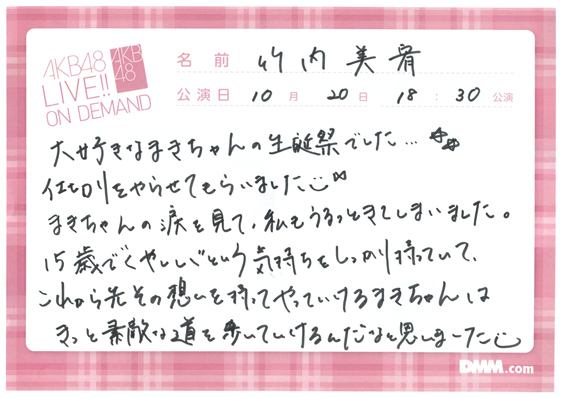 AKB48
LIVE!!
ON DEMAND
AKB
48
名前 竹内美宥
公演日 10月 20日 18:30公演
大好きなまきちゃんの生誕祭でした…
仕切りをやらせてもらいました
まきちゃんの涙を見て、私もうるっときてしまいました。
15歳でくやしいという気持ちをしっかり持っていて、
これから先その想いを持ってやっていけるまきちゃんは
きっと素敵な道を歩いていけるんだなと思いました
DMM.com